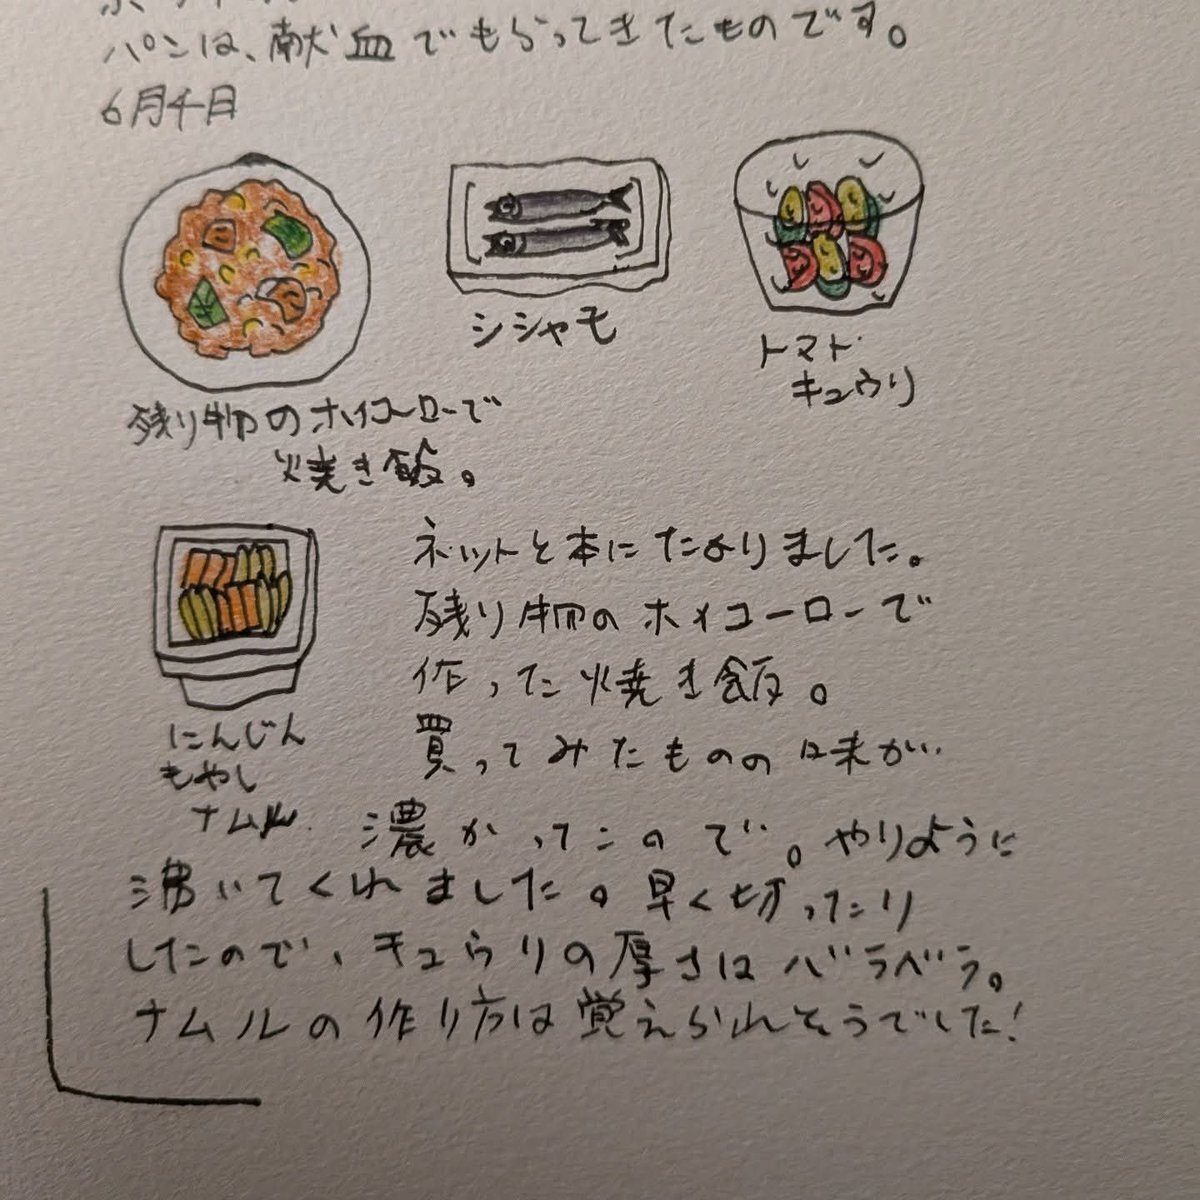 パンは、献血でもらってきたものです。
6月千日
シシャモ
トマト
キュウリ
残り物のホイコーローで
焼き飯。
にんじん
もやし
ナムル
ネットと本にたよりました。
残り物のホイコーローで
作った焼き飯。
買ってみたものの味が
濃かってこので。やりように
沸いてくれました。早く切ったり
したので、キュウリの厚さはバラベラ。
ナムルの作り方は覚えられそうでした!